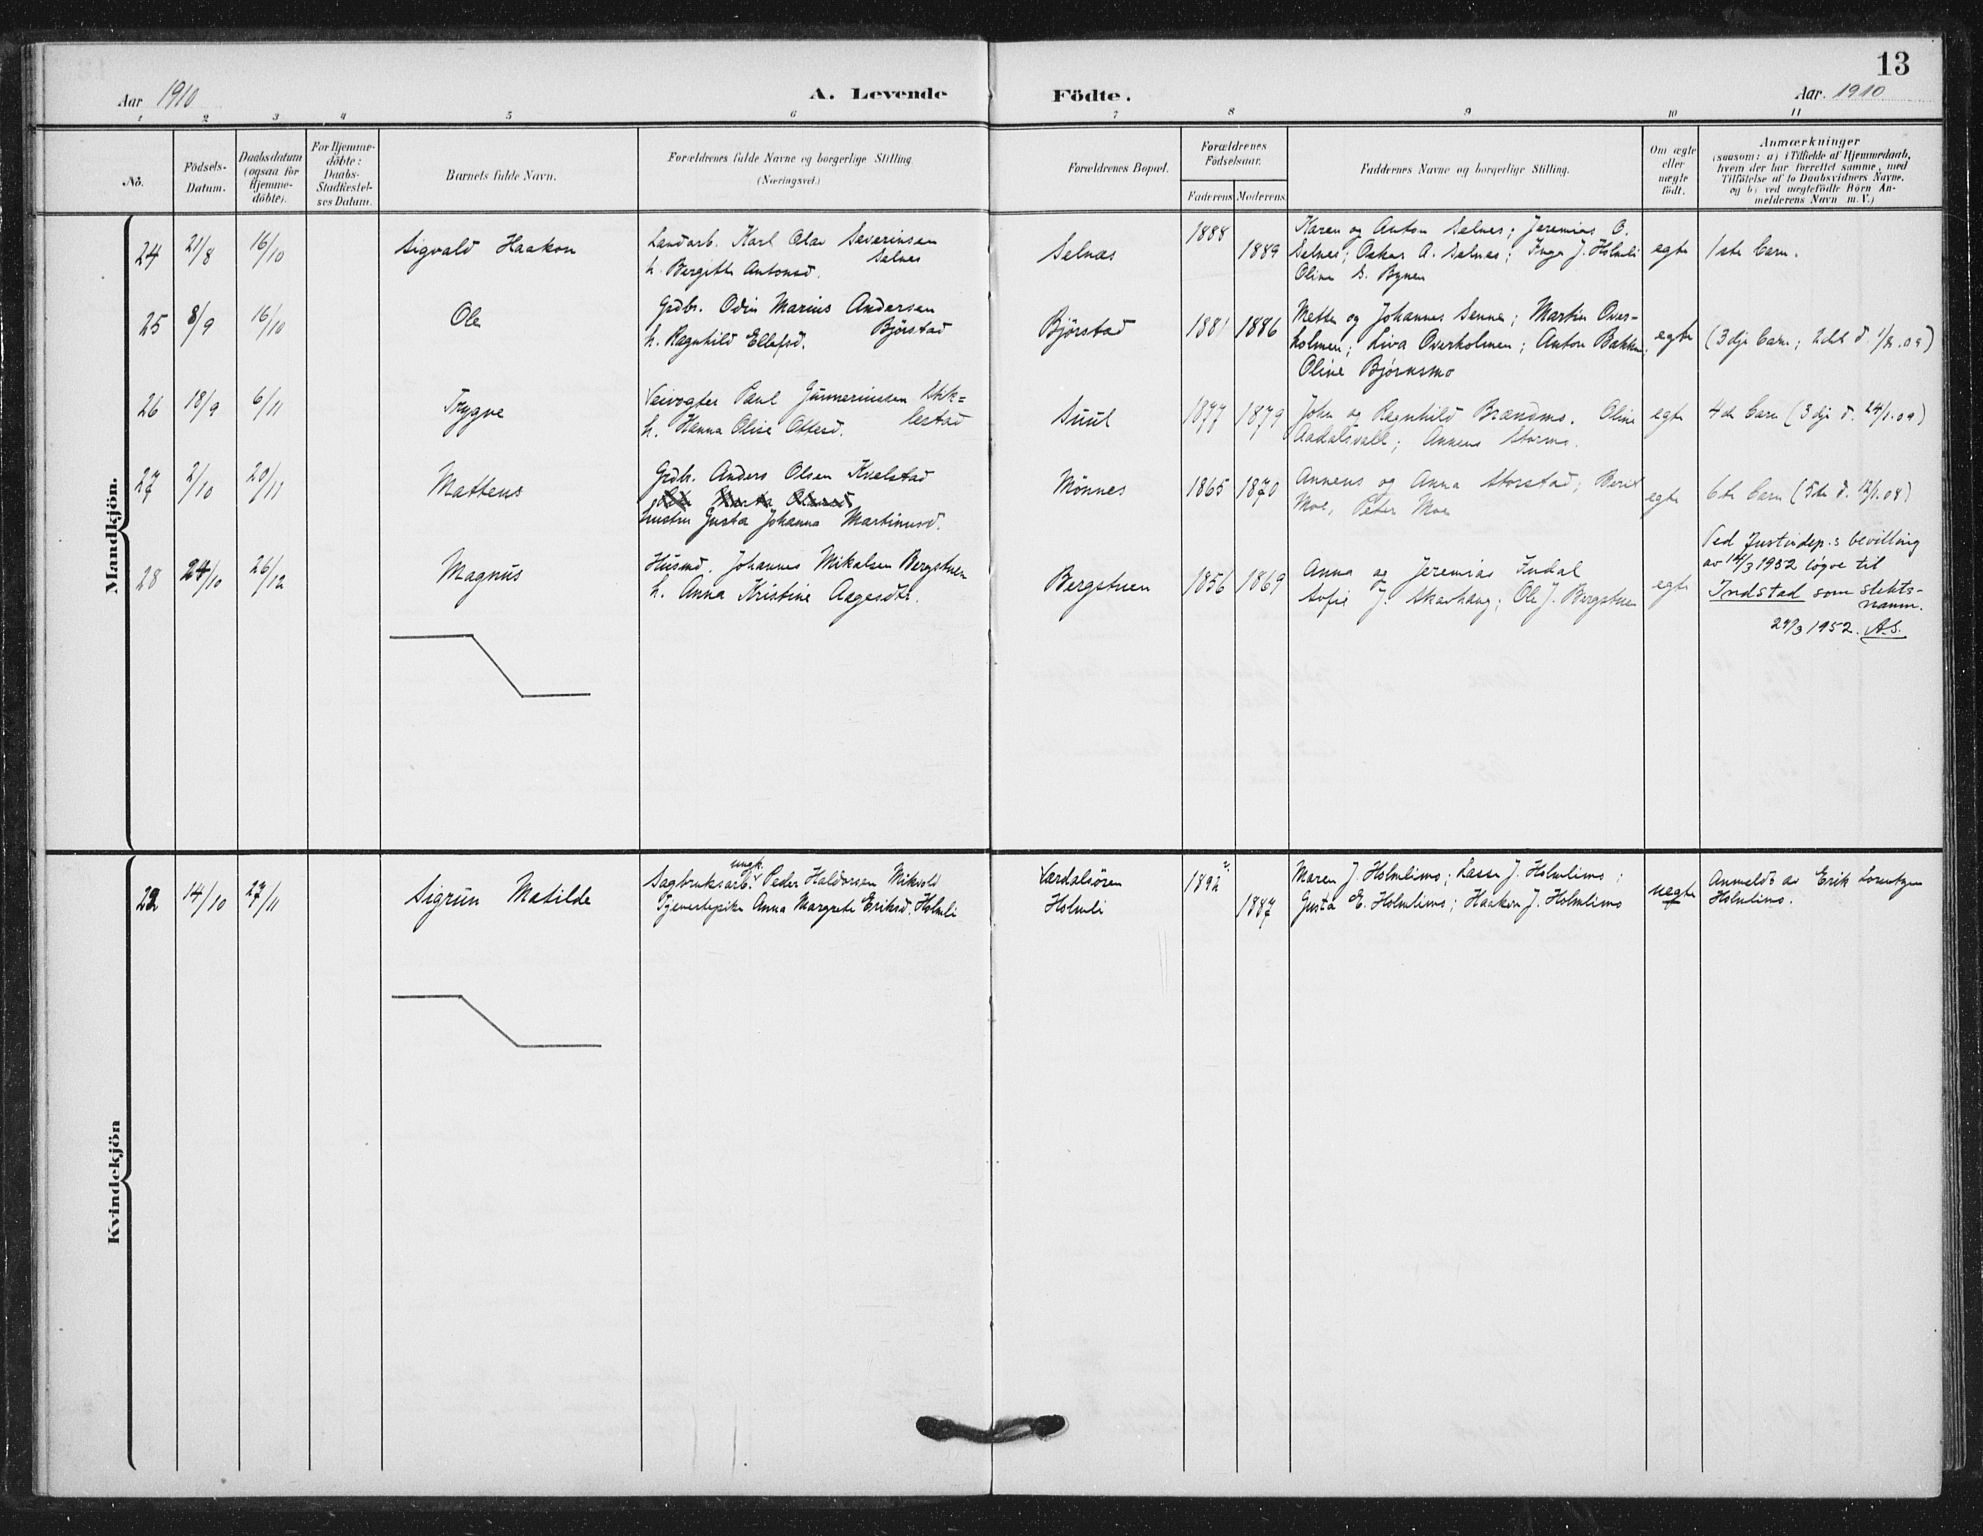 13
Aar 1910
A. Levende Födte.
Aar. 1910
1 2 3 4 5 6 7 8 9 10 11
No.
Födsels-
Datum.
Daabsdatum
(ogsaa for
Hjemme-
döbte).
For Hjemme-
döbte:
Daabs-
Stadfæstel-
ses Datum.
Barnets fulde Navn.
Forældrenes fulde Navne og borgerlige Stilling.
(Næringsvei.)
Forældrenes Bopæl.
Forældrenes
Födselsaar.
Faderens Moderens
Faddernes Navne og borgerlige Stilling.
Om ægte
eller
uægte
födt.
Anmærkninger
(saasom: a) i Tilfælde af Hjemmedaab,
hvem der har forrettet samme, med
Tilföielse af to Daabsvidners Navne,
og b) ved uægtefödte Börn An-
melderens Navn m. V.)
Mandkjön.
24 21/8 16/10 Sigvald Haakon
Landarb. Karl Olav Severinsen
Selnes
h. Bergitte Antonsd.
Selnæs
1888 1889
Karen og Anton Selnes; Jeremias O.
Selnes; Oskar A. Selnæs; Inga J. Holmli
Oline S. Bynen
egte
1ste barn.
25 8/9 16/10 Ole
Grdbr. Odin Marius Andersen
Bjørstad
h. Ragnhild Ellefsd.
Bjørstad
1881 1886
Mette og Johannes Senne; Martin Over-
holmen; Liva Overholmen; Anton Bakken;
Oline Bjørnsmo
egte
(3dje barn; 2det d. 1/8.09)
26 18/9 6/11 Trygve
Veivogter Paul Gunneriussen Stik=
lestad
h. Hanna Olise Ottesd.
Suul
1877 1879
John og Ragnhild Brændmo. Oline
Aadalsvold; Anneus Stormo.
egte
4de barn (3dje d. 24/1.09)
27 2/10 20/11 Matteus
Grdbr. Anders Olsen Kvelstad
hustru Gusta Johanna Martinusd.
Mönnes
1865 1870
Anneus og Anna Storstad; Beret
Moe, Peter Moe
egte
6te barn (5te d. 12/1.08)
28 24/10 26/12 Magnus
Husmd. Johannes Mikalsen Bergstuen
h. Anna Kristine Aagesdtr.
Bergstuen
1856 1869
Anna og Jeremias Indal
Sofie J. Skavhaug; Ole J. Bergstuen
egte
Ved Justisdep.s bevilling
av 14/3 1952 løyve til
Indstad som slekts-
namn.
29/3 1952. A.S.
Kvindekjön
22 14/10 27/11 Sigrun Matilde
ungk.
Sagbruksarb. Peder Haldorsen Mikvold
Tjenestepike Anna Margrete Eriksd. Holmli
Værdalsören
Holmli
1892 1887
Maren J. Holmlimo; Lasse J. Holmlimo;
Gusta E. Holmlimo; Haakon J. Holmlimo
uegte
Anmeldt av Erik Lorentzen
Holmlimo.